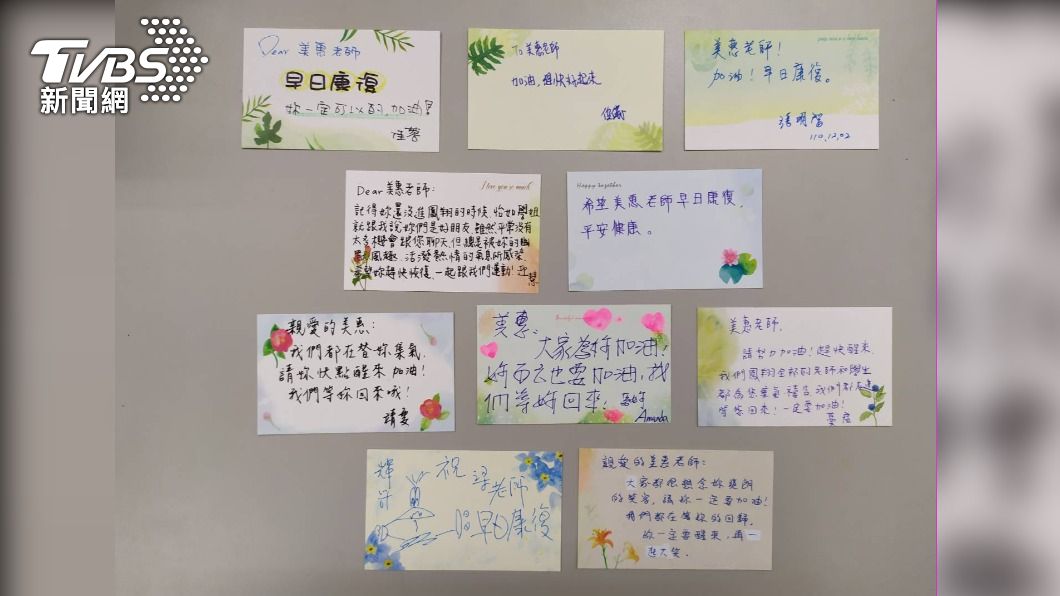 TVBS
新聞網
Dear 美惠老師
早日康復
妳一定可以的,加油!
To 美惠老師
加油,趕快好起來
美惠老師!
加油!早日康復。
110.12.02
I love you so much
Dear 美惠老師:
記得妳還沒進鳳翔的時候,怡如學姐
就跟我說妳們是好朋友,雖然平常沒有
太多機會跟您聊天,但總是被妳的幽
默風趣、活潑熱情的氣息所感染,
希望妳趕快恢復,一起跟我們運動!
Happy together
希望美惠老師早日康復,
平安健康。
親愛的美惠:
我們都在替妳集氣
請妳快點醒來 加油!
我們等妳回來哦!
美惠、
大家為妳加油!
妳自己也要加油,我
們等妳回來!
Amanda
美惠老師,
請努力加油!趕快醒來,
我們鳳翔全部的老師和學生
都為您集氣禱告,我們都在這
等您回來!一定要加油!
祝 梁老師
早日康復
親愛的美惠老師:
大家都很想念妳爽朗
的笑容,請妳一定要加油!
我們都在等妳的回歸,
妳一定要醒來,再一
起大笑。